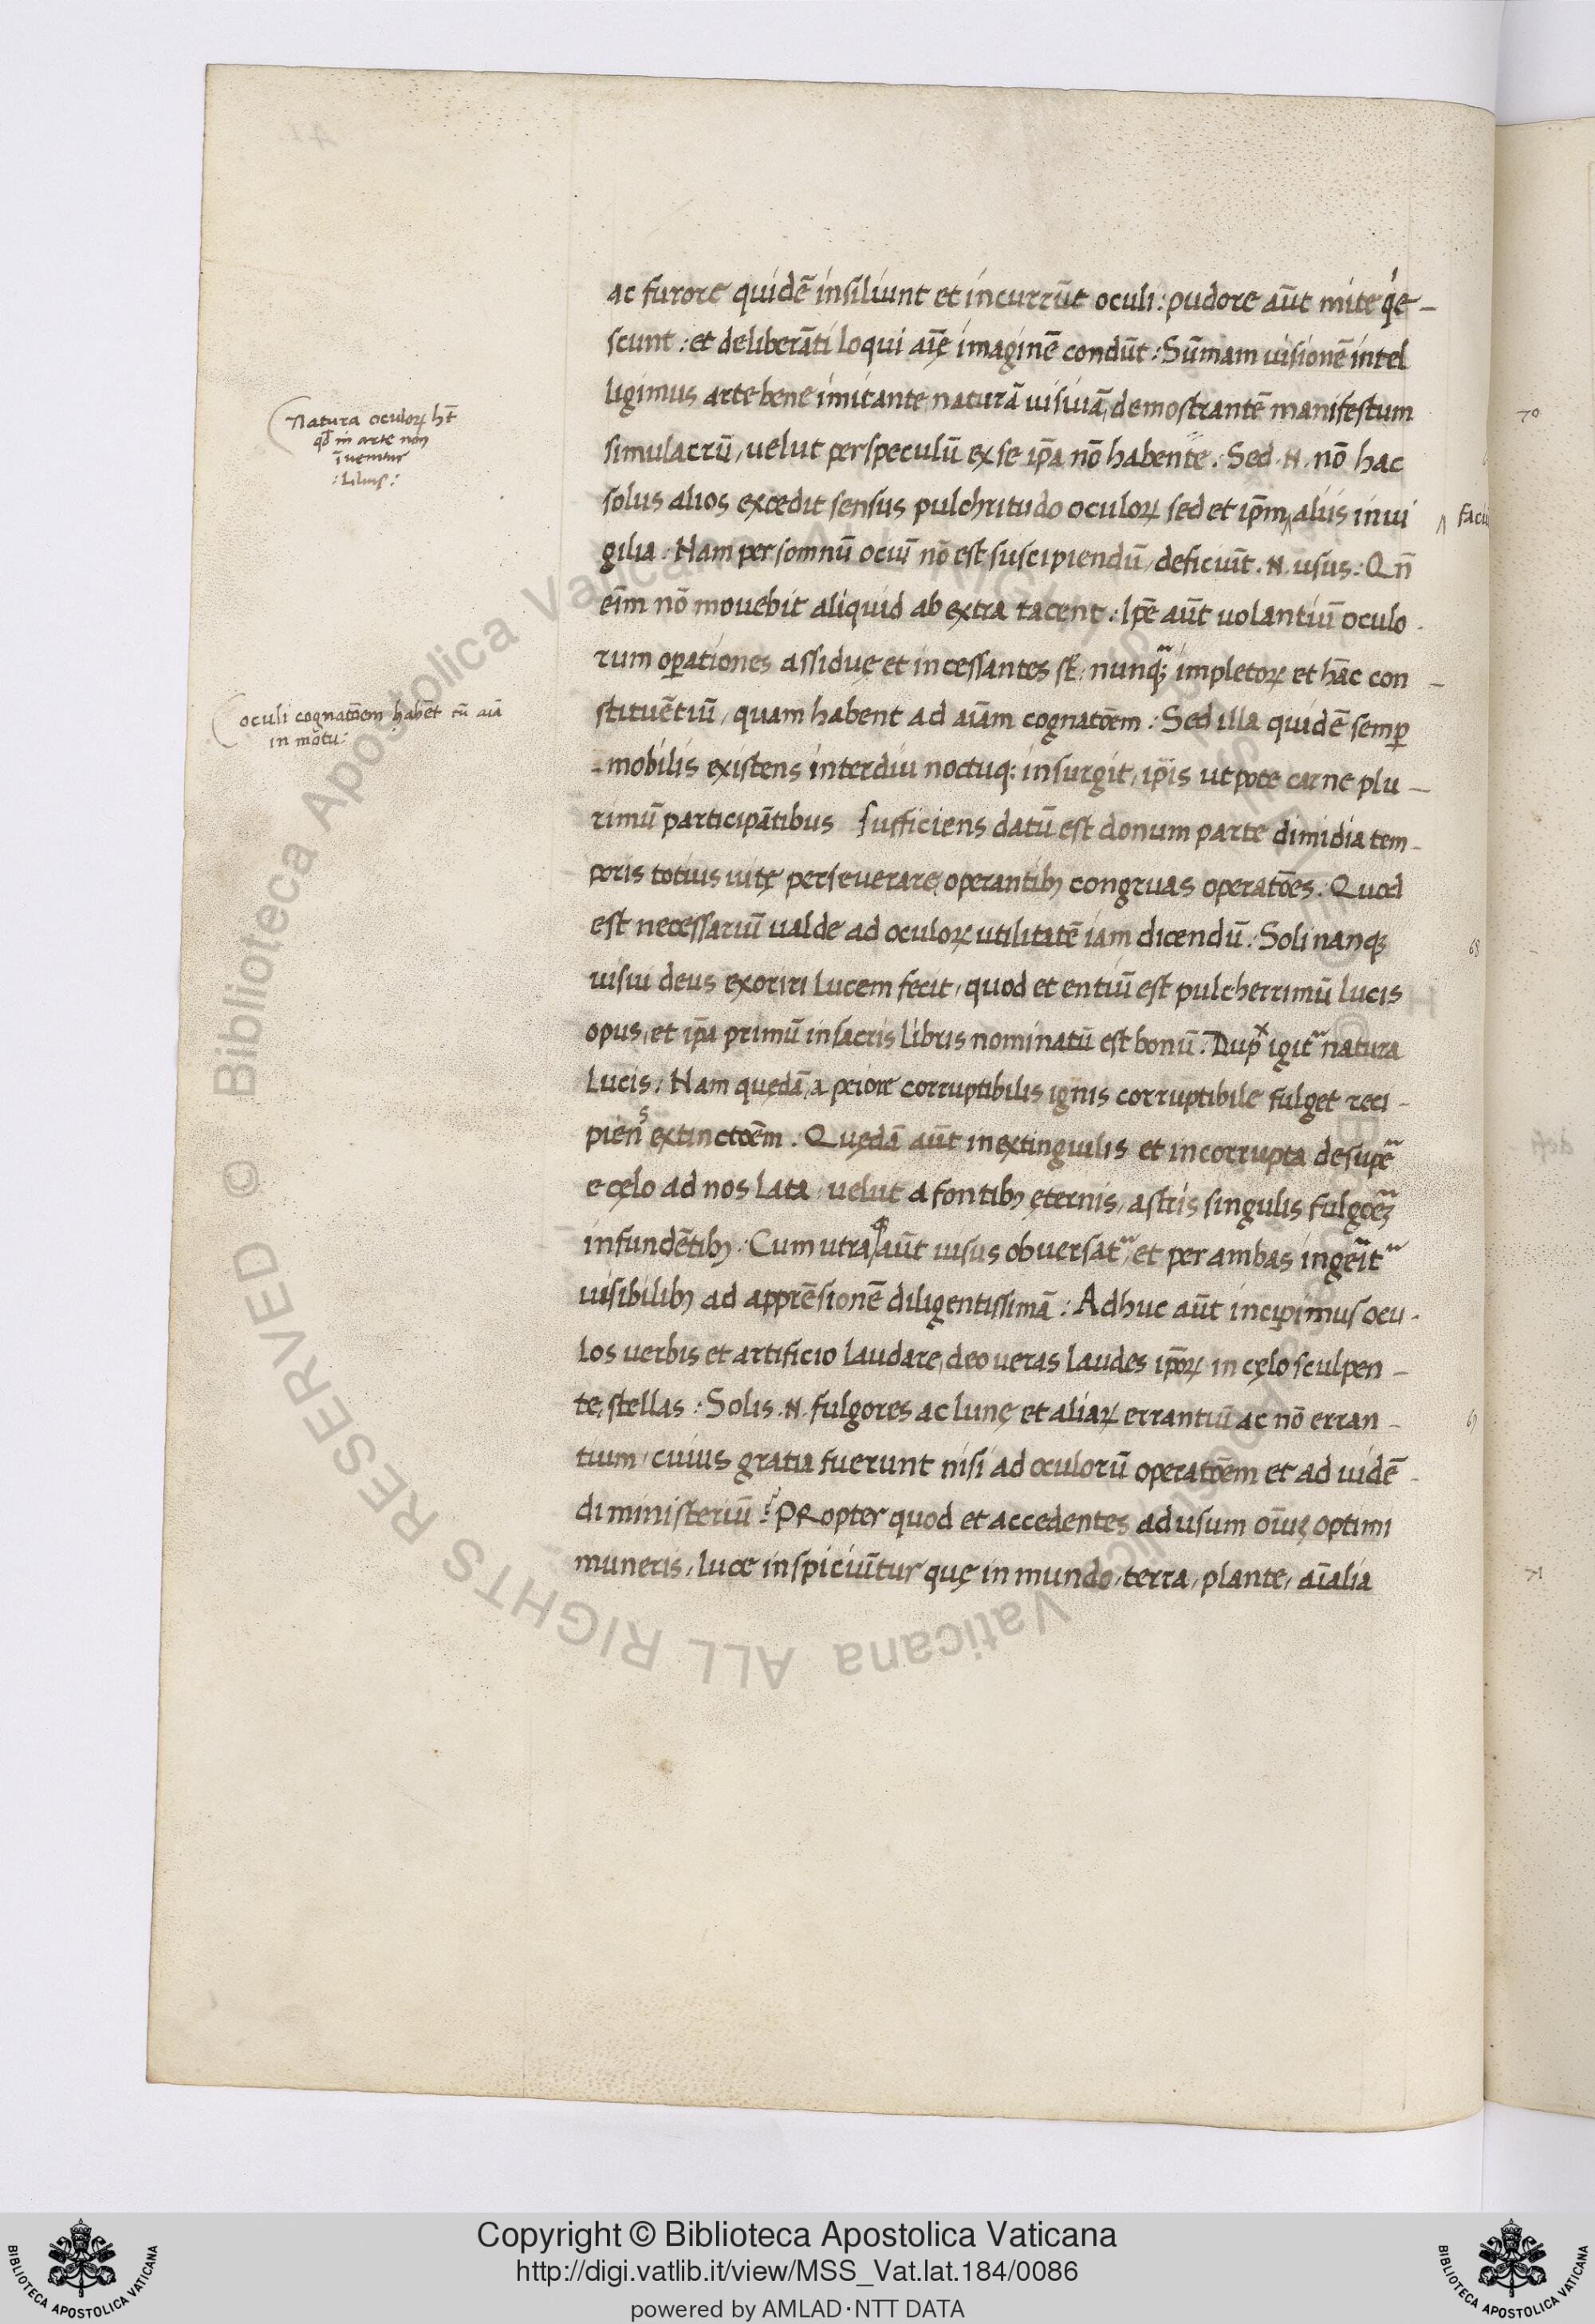 ac furore quidē insiliunt et incurrūt oculi : pudore aūt mite qͥe-
scunt : et deliberāti loqui aīę imaginē condūt : Sūmam uisionē intel
ligimus arte bene imitante naturā uisiuā, demostrantē manifestum
simulacrū, uelut per speculū ex se ip̄a nō habente. Sed .N. nō hac
solus alios excedit sensus pulchritudo oculoꝝ sed et ip̄m ^ aliis in ui
^ faci
gilia : Nam per somnū ociū nō est suscipiendū, deficiūt .N. usus : Qn̄
eīm nō mouebit aliquid ab extra tacent : Ip̄e aūt uolantiū oculo-
rum oꝑationes assiduę et incessantes st̄ : nunq̄ impletoꝝ et hāc con-
stituētiū, quam habent ad aīam cognatōem : Sed illa quidē semꝑ
mobilis existens interdiu noctuqꝫ insurgit, ip̄is utpote carne plu-
rimū participātibus sufficiens datū est donum parte dimidia tem-
poris totius uitę perseuerare, operantibꝫ congruas operatōes. Quod
est necessariū ualde ad oculoꝝ utilitatē iam dicendū. Soli nanqꝫ
uisui deus exoriri lucem fecit, quod et entiū est pulcherrimū lucis
opus, et ip̄a primū in sacris libris nominatū est bonū. Dupˣ igit̄ natura
lucis. Nam quędā, a priore corruptibilis ignis corruptibile fulget reci-
piens extinctōem. Quędā aūt inextinguilis et incorrupta desupe᷑
e cęlo ad nos lata, uelut a fontibꝫ ęternis, astris singulis fulgoꝫ
infundētibꝫ. Cum utraqꝫ aūt uisus obuersat᷑, et per ambas ingeīt᷑
uisibilibꝫ ad apprēsionē diligentissimā : Adhuc aūt incipimus ocu-
los uerbis et artificio laudare, deo ueras laudes ip̄oꝝ in cęlo sculpen-
te, stellas : Solis .N. fulgores ac lunę et aliaꝝ errantiū ac nō erran-
tium, cuius gratia fuerunt nisi ad oculorū operatōem et ad uidē-
di ministeriū ? PRopter quod et accedentes ad usum oīuꝫ optimi
muneris, luce inspiciūtur quę in mundo, terra, plante, aīalia
Natura oculoꝝ ht̄
qd̄ in arte non
īuenitur
oculi cognatōem habēt cū aīa
in motu :
70
68
71
Copyright © Biblioteca Apostolica Vaticana
http://digi.vatlib.it/view/MSS_Vat.lat.184/0086
powered by AMLAD·NTT DATA
BIBLIOTECA APOSTOLICA VATICANA
BIBLIOTECA APOSTOLICA VATICANA
© Biblioteca Apostolica Vaticana ALL RIGHTS RESERVED